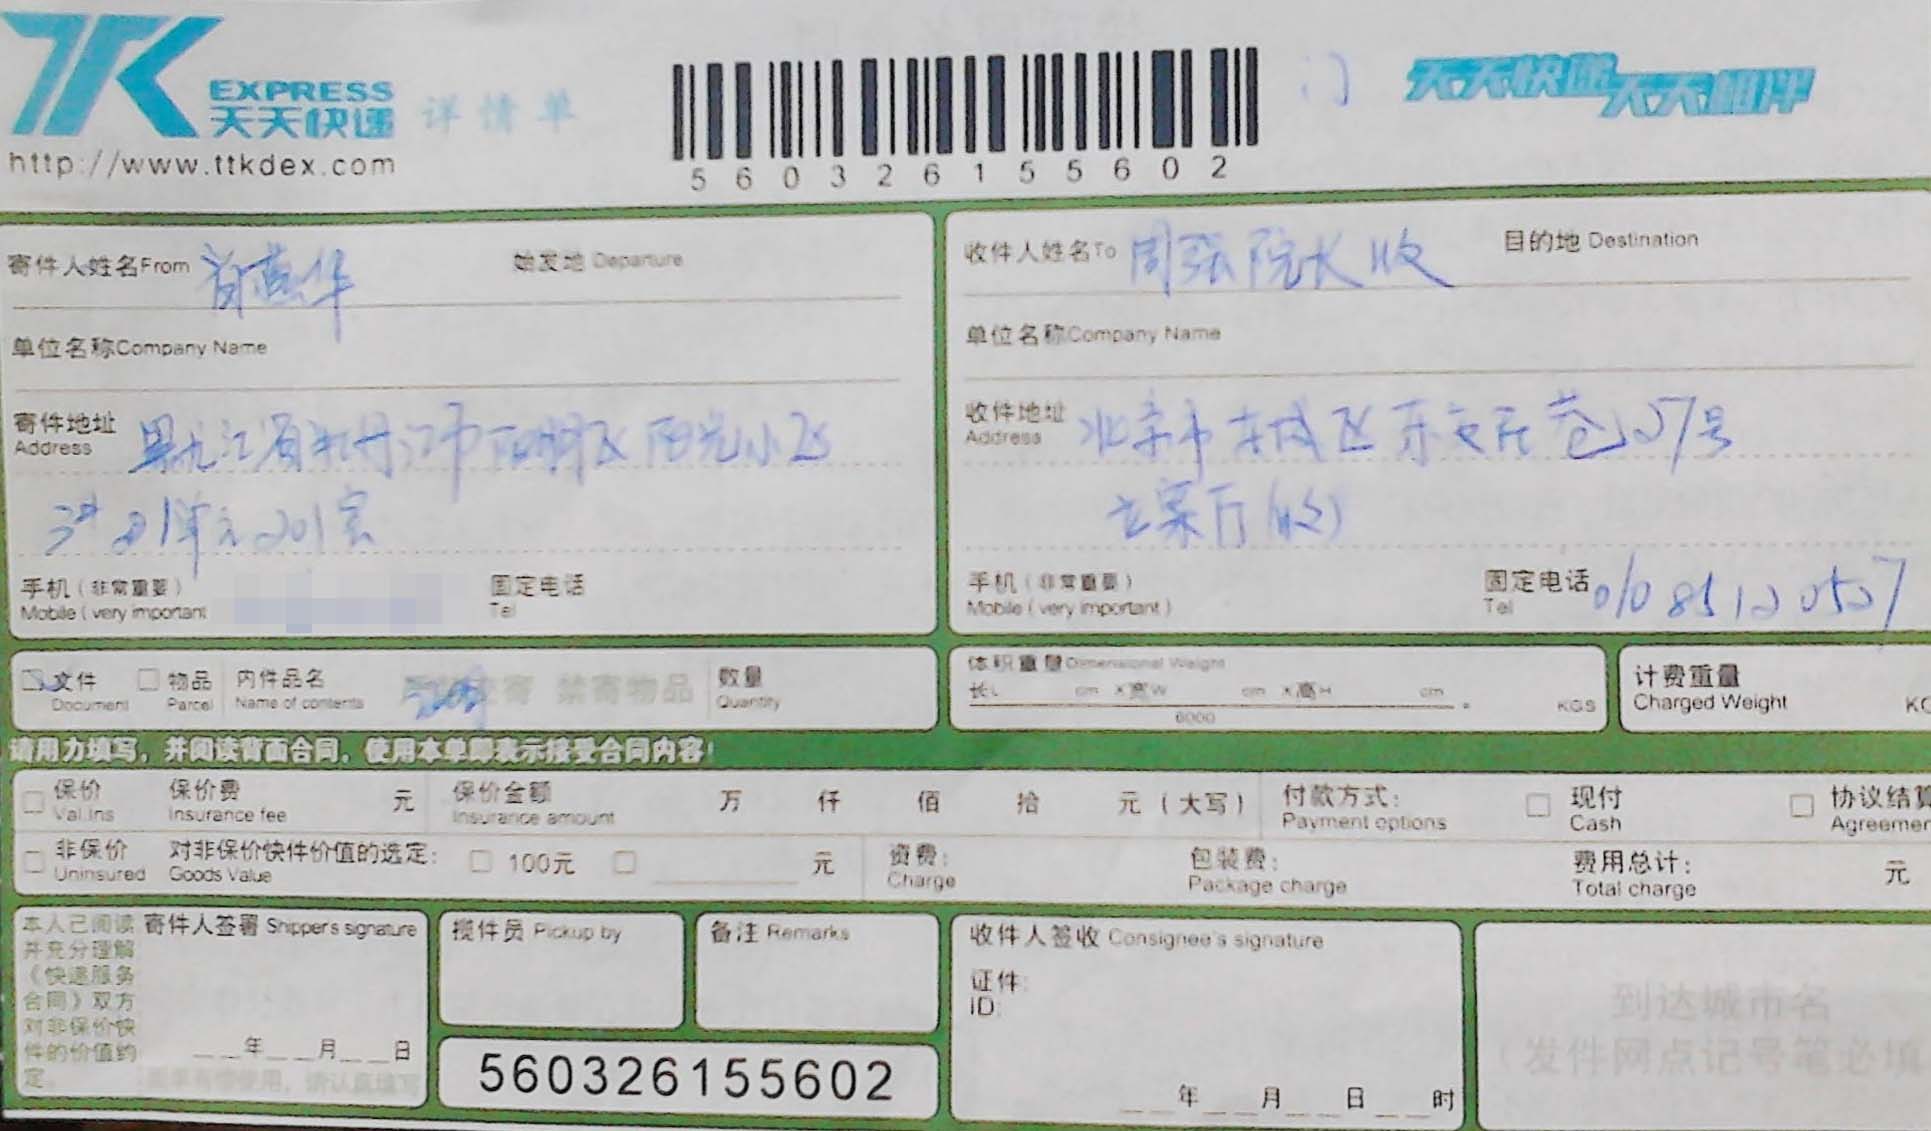 TTK EXPRESS
天天快递 详情单
http://www.ttkdex.com
560326155602
天天快递 天天相伴
寄件人姓名From 始发地 Departure
单位名称Company Name
寄件地址 黑龙江省牡丹江市阳明区阳光小区
Address
1单元201室
手机(非常重要) 固定电话
Mobile ( very important Tel
收件人姓名To 周强院长收 目的地 Destination
单位名称Company Name
收件地址 北京市东城区东交民巷27号
Address
立案厅(收)
手机(非常重要) 固定电话
Mobile ( very important ) Tel
文件 物品 内件品名 禁寄物品 数量
Document Parcel Name of contents Quantity
体积重量Dimensional Weight
长L cm ×宽W cm ×高H cm
6000 KGS
计费重量
Charged Weight KG
请用力填写,并阅读背面合同,使用本单即表示接受合同内容!
保价 保价费 元 保价金额 万 仟 佰 拾 元(大写) 付款方式: 现付 协议结算
Val.Ins Insurance fee Insurance amount Payment options Cash Agreemen
非保价 对非保价快件价值的选定: 100元 元 资费: 包装费: 费用总计: 元
Uninsured Goods Value Charge Package charge Total charge
本人已阅读
并充分理解
《快递服务
合同》双方
对非保价快
件的价值约
定。
寄件人签署 Shipper's signature
年 月 日
揽件员 Pickup by
备注 Remarks
560326155602
收件人签收 Consignee's signature
证件:
ID:
年 月 日 时
到达城市名
(发件网点记号笔必填